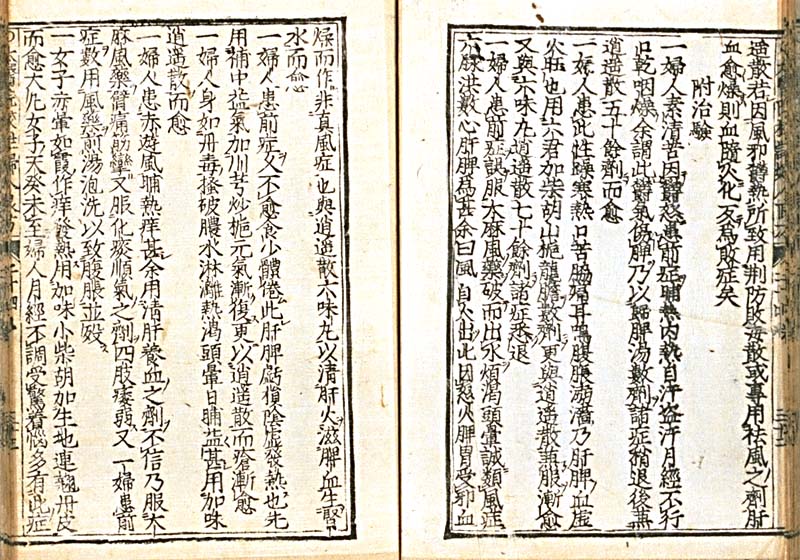 逍散若因風邪鬱熱所致用荆防敗毒散或專用祛風之劑肝
血愈燥則血隨火化反為敗症矣
附治驗
一婦人素清苦因鬱怒患前症晡熱内熱自汗盗汗月經不行
口乾咽燥余謂此鬱氣傷脾乃以歸脾湯數劑諸症稍退後兼
逍遥散五十餘劑而愈
一婦人患此性躁寒熱口苦脇痛耳鳴腹脹溺澁乃肝脾血虚
火旺也用六君加柴胡山梔龍膽數劑更與逍遥散諸服漸愈
又與六味丸逍遥散七十餘劑諸症悉退
一婦人患前症誤服大麻風藥破而出水煩渴頭暈誠類風症
六脉洪數心肝脾為甚余曰風自火出此因怒火脾胃受邪血
燥而作非真風症也與逍遥散六味丸以清肝火滋脾血生腎
水而愈
一婦人患前症久不愈食少體倦此肝脾虧損陰虚發熱也先
用補中益氣加川芎炒梔元氣漸復更以逍遥散而瘡漸愈
一婦人身如丹毒搔破膿水淋漓熱渴頭暈日晡益甚用加味
逍遥散而愈
一婦人患赤遊風晡熱痒甚余用清肝養血之劑不信乃服大
麻風藥臂痛筋攣又服化痰順氣之劑四肢痿弱又一婦患前
症數用風藥煎湯泡洗以致腹脹並殁
一女子赤暈如霞作痒發熱用加味小柴胡加生地連翹丹皮
而愈大凡女子天癸未至婦人月經不調受驚着惱多有此症